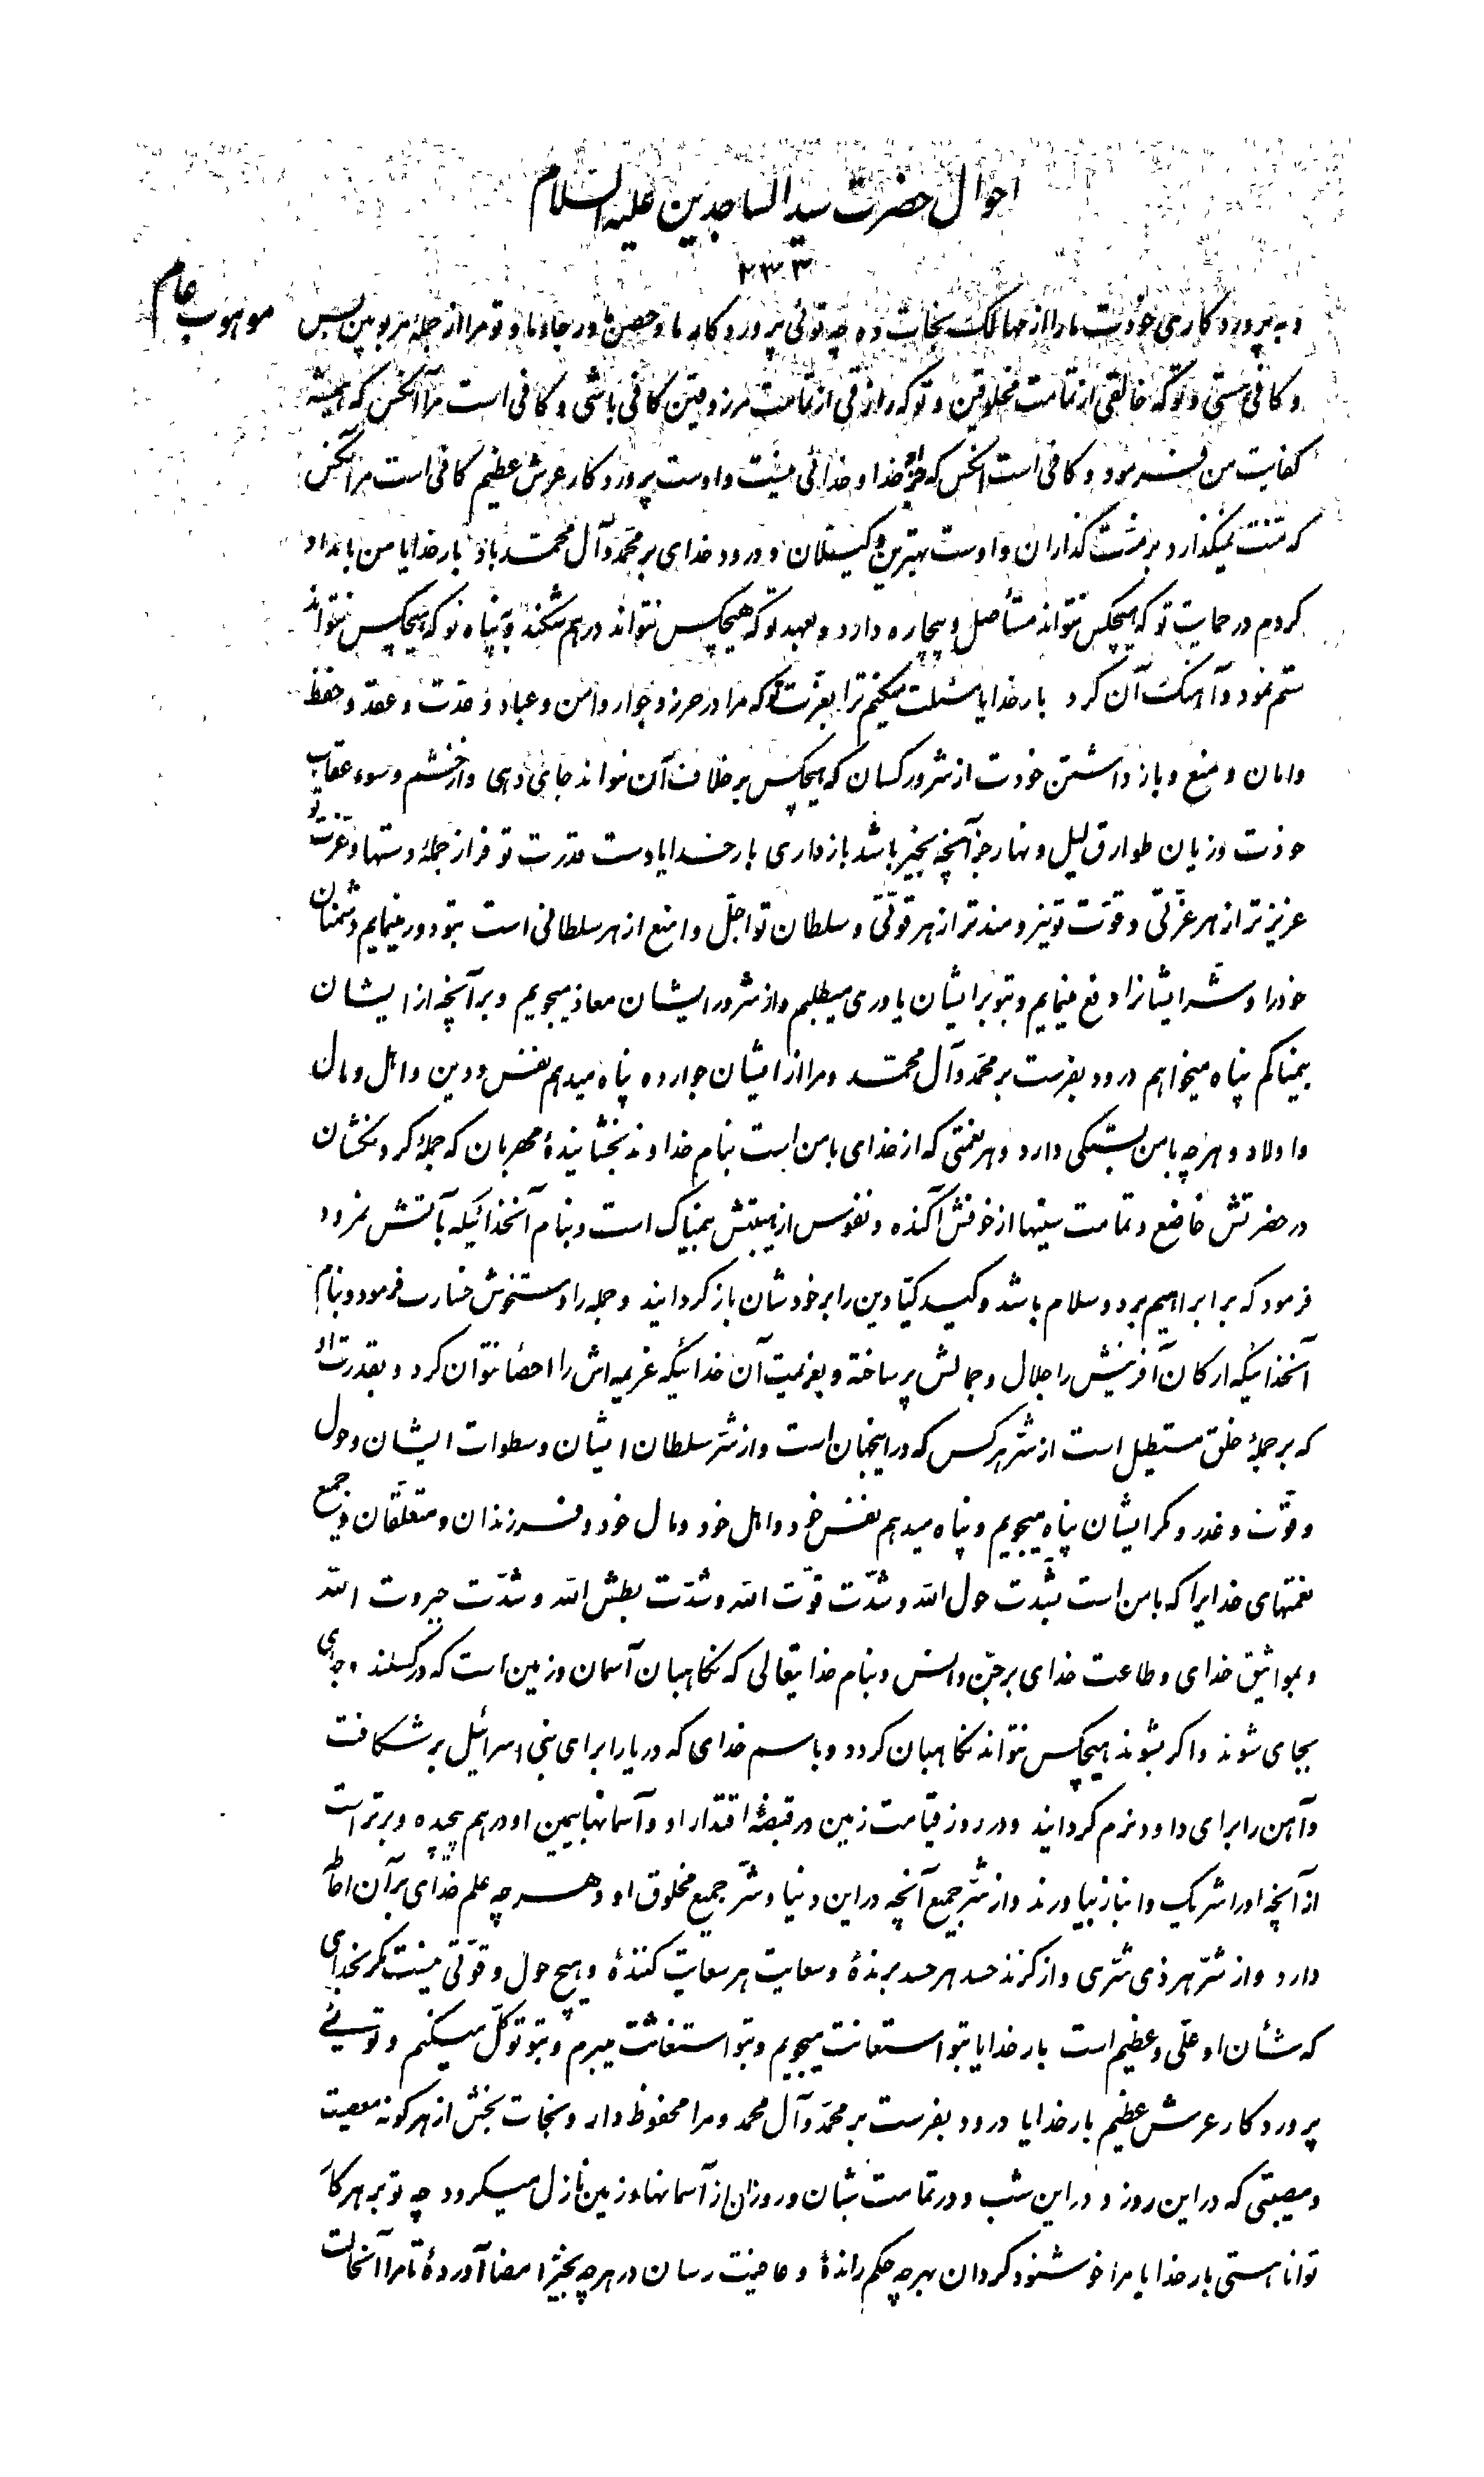 احوال حضرت سید الساجدین علیه السلام
۲۳۳
موهوب عام
و به پروردگاری خودت ما را از مهالک نجات ده چه توئی پروردگار ما و حصن ما و رجاء ما و تو مرا از جملهٔ مربوبین بس
و کافی هستی و تو که خالقی از تمامت مخلوقین و تو که رازقی از تمامت مرزوقین کافی باشی و کافی است مرا آنکس که همیشه
کفایت من فرمود و کافی است آنکس که جز او خدا و خدائی نیست و اوست پروردگار عرش عظیم کافی است مرا آنکس
که منت نمیگذارد بر منت گذاران و اوست بهترین وکیلان و درود خدای بر محمد و آل محمد باد بار خدایا من بامداد
کردم در حمایت تو که هیچکس نتواند مستأصل و بیچاره دارد و بعهد تو که هیچکس نتواند در هم شکند و به پناه تو که هیچکس نتواند
ستم نمود و آهنگ آن کرد بار خدایا مسئلت میکنم ترا بعزت تو که مرا در حرز و جوار و امن و عیاذ و ذمت و عقد و حفظ
و امان و منع و باز داشتن خودت از شرور کسان که هیچکس بر خلاف آن نتواند جای دهی و از خشم و سوء عقاب
خودت و زیان طوارق لیل و نهار جز آنچه بخیر باشد باز داری بار خدایا دست قدرت تو فراز جملهٔ دستها و عزت تو
عزیزتر از هر عزتی و قوت تو نیرومندتر از هر قوتی و سلطان تو اجلّ و امنع از هر سلطانی است بتو دور مینمایم دشمنان
خود را و شر ایشانرا دفع مینمایم و بتو بر ایشان یاوری میطلبم و از شرور ایشان معاذ میجویم و بر آنچه از ایشان
بیمناکم پناه میخواهم درود بفرست بر محمد و آل محمد و مرا از ایشان جوار ده پناه میدهم نفس و دین و اهل و مال
و اولاد و هر چه با من بستگی دارد و هر نعمتی که از خدای با من است بنام خداوند بخشایندهٔ مهربان که جملهٔ گردنکشان
در حضرتش خاضع و تمامت سینها از خوفش آکنده و نفوس از هیبتش بیمناک است و بنام آنخدائیکه بآتش نمرود
فرمود که بر ابراهیم برد و سلام باشد و کید کیّادین را بر خودشان باز گردانید و جمله را دستخوش خسارت فرمود و بنام
آنخدائیکه ارکان آفرینش را جلال و جمالش پر ساخته و بعزیمت آن خدائیکه عزیمه‌اش را احصا نتوان کرد و بقدرت او
که بر جملهٔ خلق مستطیل است از شر هر کس که در اینجهان است و از شر سلطان ایشان و سطوات ایشان و حول
و قوت و غدر و مکر ایشان پناه میجویم و پناه میدهم نفس خود و اهل خود و مال خود و فرزندان و متعلقان و جمیع
نعمتهای خدایرا که با من است بشدت حول الله و شدّت قوّت الله و شدّت بطش الله و شدّت جبروت الله
و بمواثیق خدای و طاعت خدای بر جن و انس و بنام خدا یتعالی که نگاهبان آسمان و زمین است که در گسلند و جای
بجای شوند و اگر بشوند هیچکس نتواند نگاهبان گردد و باسم خدای که دریا را برای بنی اسرائیل بر شکافت
و آهن را برای داود نرم گردانید و در روز قیامت زمین در قبضهٔ اقتدار او و آسمانها بیمین او در هم پیچیده و برتر است
از آنچه او را شریک و انباز بیاورند و از شر جمیع آنچه در این دنیا و شر جمیع مخلوق او و هر چه علم خدای بر آن احاطه
دارد و از شرّ هر ذی شرّی و از گزند حسد هر حسد برندهٔ و سعایت هر سعایت کنندهٔ و هیچ حول و قوتی نیست مگر بخدای
که شأن او علّی و عظیم است بار خدایا بتو استعانت میجویم و بتو استغاثت میبرم و بتو توکّل میکنم و توئی
پروردگار عرش عظیم بار خدایا درود بفرست بر محمد و آل محمد و مرا محفوظ دار و نجات بخش از هر گونه معصیت
و مصیبتی که در این روز و در این شب و در تمامت شبان و روزان از آسمانها و زمین نازل میگردد چه تو بر هر کار
توانا هستی بار خدایا مرا خوشنود گردان بهر چه حکم راندهٔ و عافیت رسان در هر چه بخیر امضا آوردهٔ تا مرا آنحالت